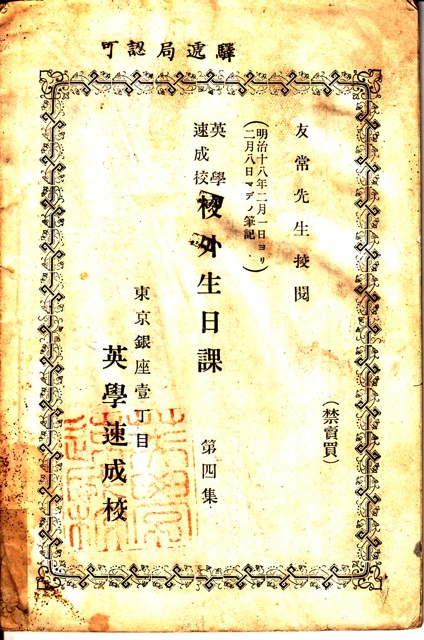 驛遞局認可
友常先生挍閲
(禁賣買)
(明治十八年二月一日ヨリ
二月八日マデノ筆記)
英學
速成校
校外生日課
第四集
東京銀座壹丁目
英學速成校